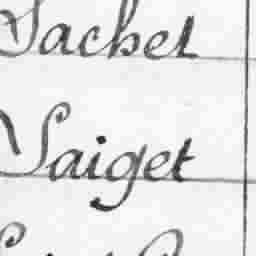 Sachet
Saiget